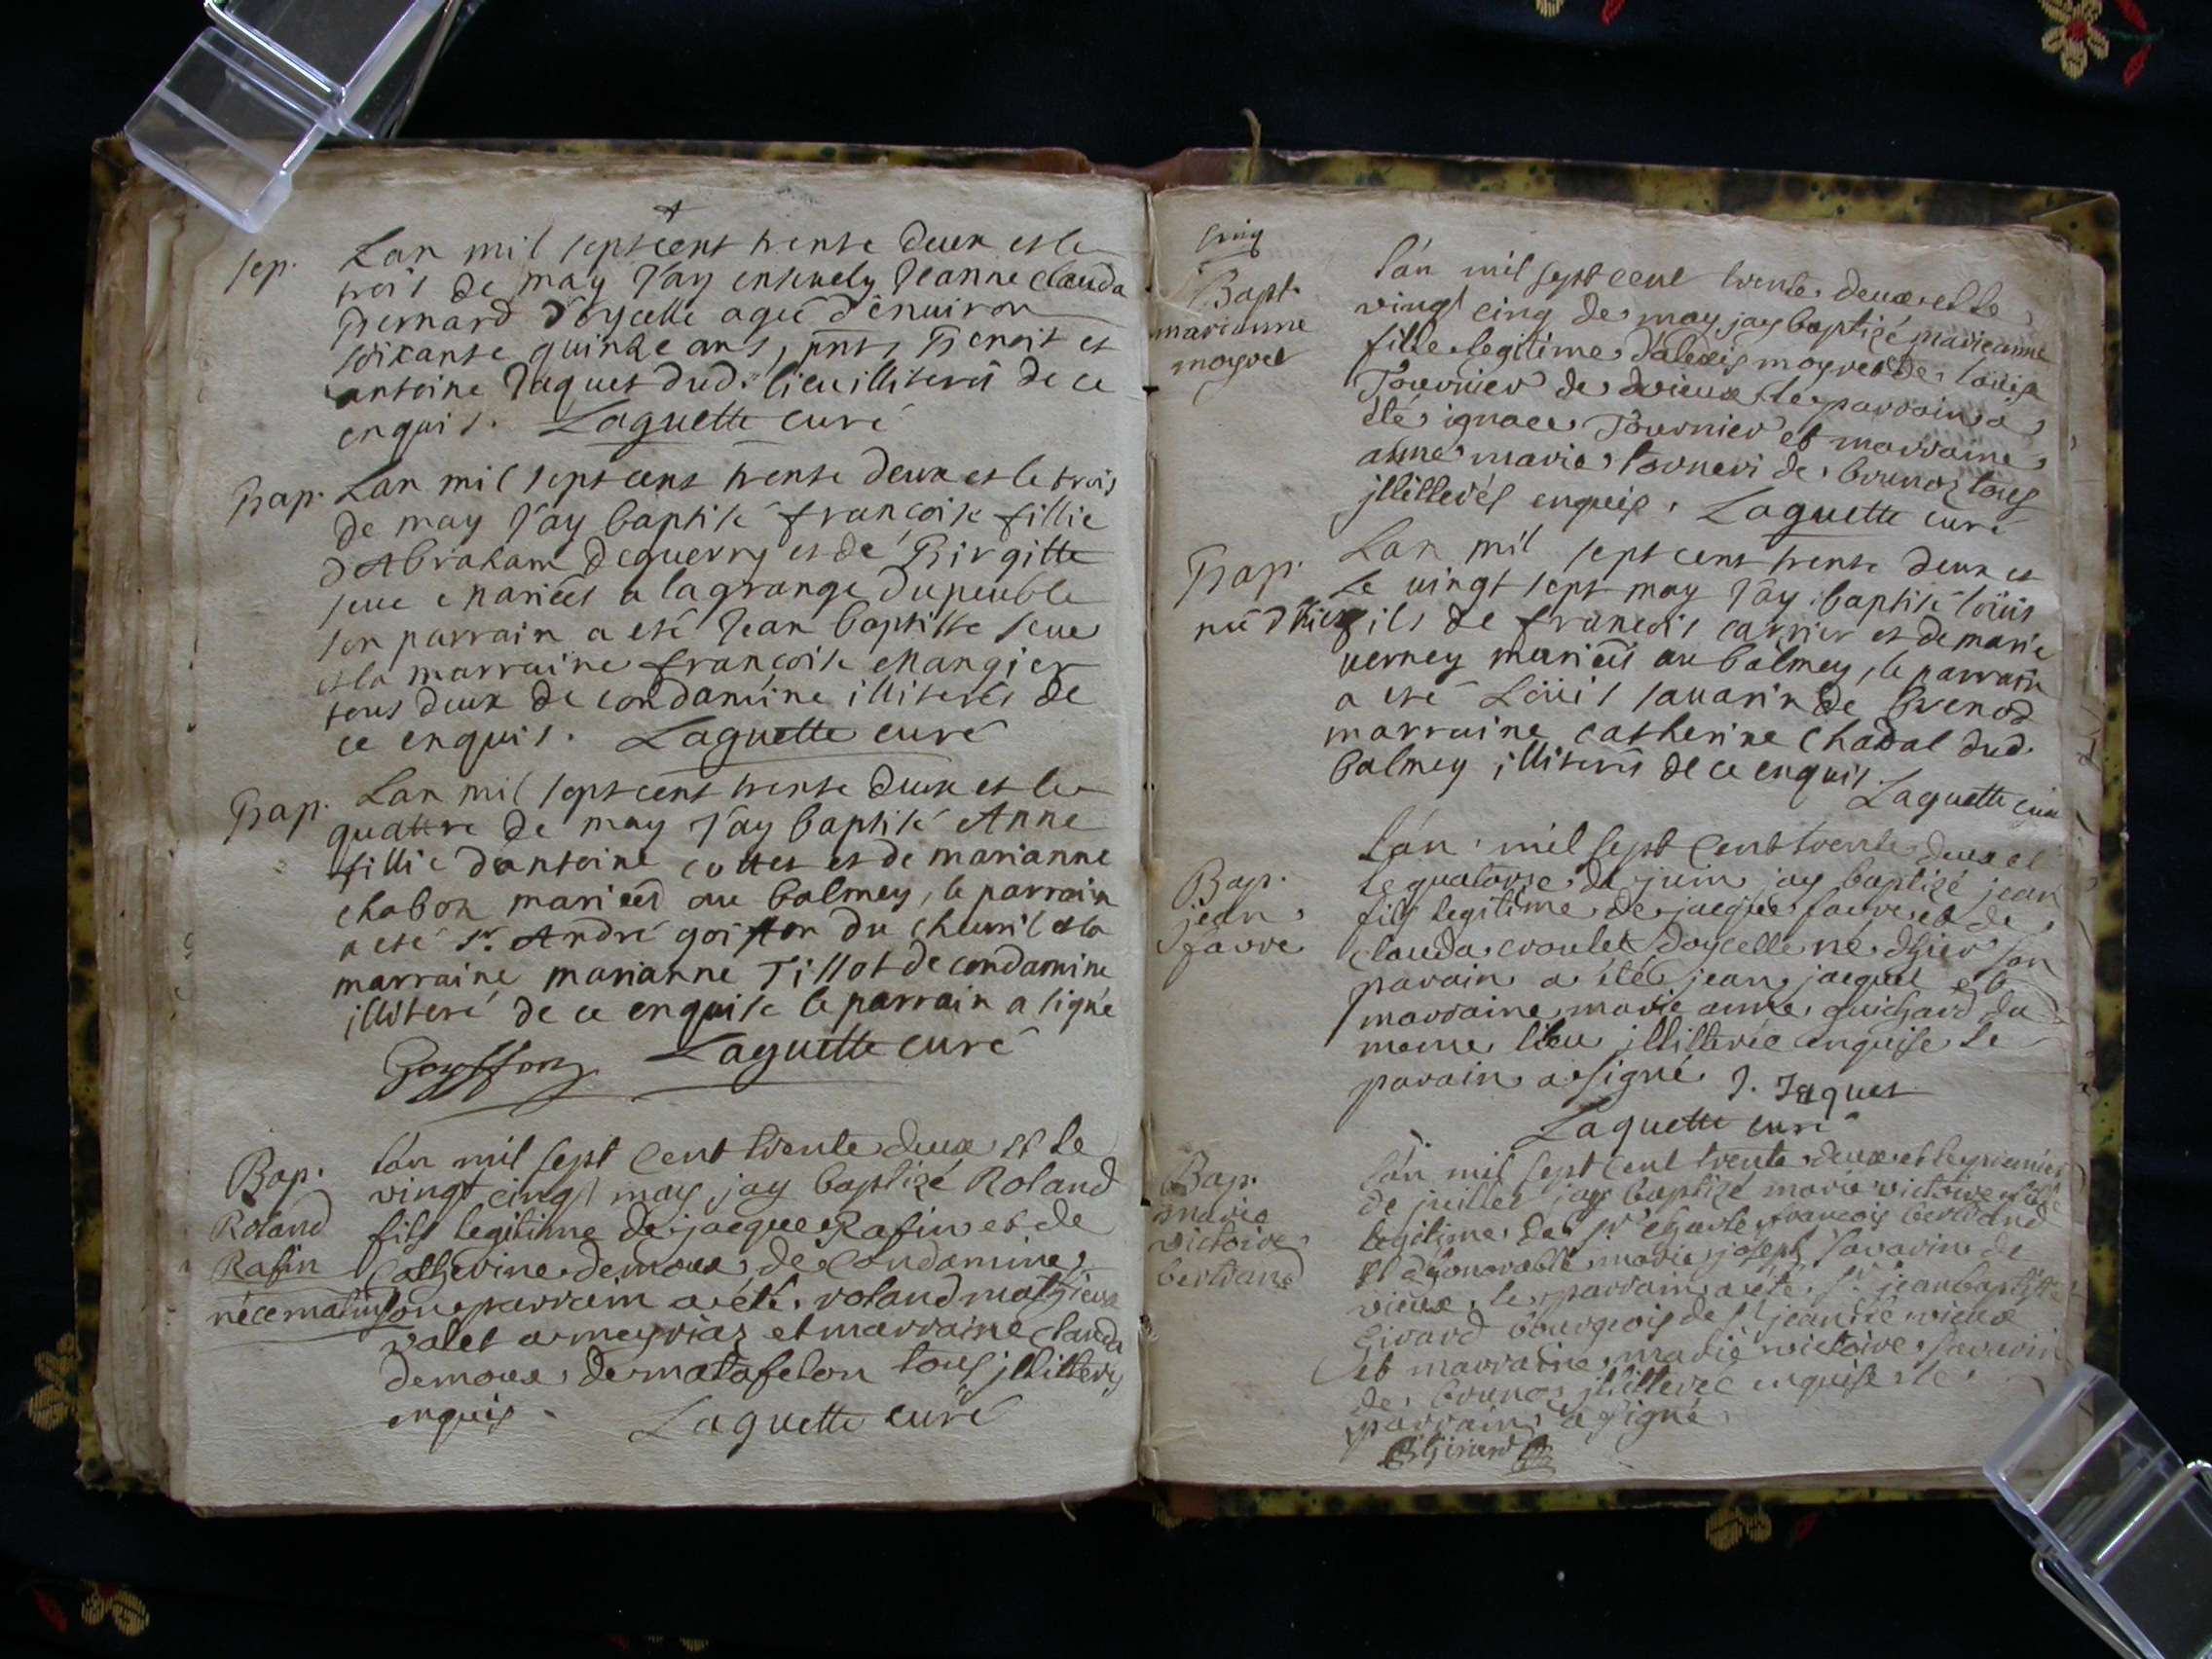 sep.
Lan mil sept cent trente deux et le
trois de may J'ay ensevely Jeanne Clauda
Bernard d'oycelle agée d'environ
soixante quinze ans, pnts, Benoit et
antoine Jaquet dud. lieu illiterés de ce
enquis. Laguette curé
Bap. Lan mil sept cent trente deux et le trois
de may J'ay baptisé françoise fillie
d'Abraham Deguerry et de Birgitte
seue mariés a la grange du peuble
son parrain a eté Jean baptiste seue
et la marraine françoise Mangier
tous deux de condamine illiterés de
ce enquis. Laguette curé
Bap. Lan mil sept cent trente deux et le
quattre de may J'ay baptisé Anne
fillie dantoine cottet et de marianne
chabon mariés au balmey, le parrain
a eté sr. André goiffon du chevril et la
marraine marianne Tillot de condamine
illiteré de ce enquise le parrain a signé
Goyffon Laguette curé
Bap.
Roland
Rafin
né ce matin
lán mil sept cent trente deux et le
vingt cinq may jay baptizé Roland
fils legitime de jacque Rafin et de
Catherine demoux de Condamine
son parrain a été roland mathieux
valet a meyriaz et marraine clauda
demoux de matafelon tous jllitterés
enquis. Laguette curé
cinq
Bapt.
marianne
moyret
lán mil sept cent trente deux et le
vingt cinq de may jay baptizé marieanne
fille legitime d'alexis moyret de loüise
Tournier de vieux le parrain a
été ignace Tournier et marraine
anne marie torneri de brenoz tous
jllitterés enquis. Laguette curé
Bap.
né d'hier
Lan mil sept cent trente deux et
Le vingt sept may J'ay baptisé loüis
fils de francois carrier et de marie
verney mariés au balmey, le parrain
a eté Loüis savarin de brenod
marraine catherine chadal dud.
balmey illiterés de ce enquis
Laguette curé
Bap.
jean
favre
lán mil sept cent trente deux et
le quatorze de juin jay baptizé jean
fils legitime de jacque favre et de
clauda croulet doycelle né d'hier son
parain a été jean jaquet et
marraine marie anne guichard du
meme lieu jllitterée enquise le
parain a signé J. Jaquet
Laguette curé
Bap.
marie
victoire
bertrand
lán mil sept cent trente deux et le premier
de juillet jay baptizé marie victoire fille
legitime de sr. charle francois bertrand
et d'honorable marie joseph savarin de
vieux, le parrain a été sr. jean baptiste
Girard bourgeois de st jean le vieux
et marraine marie victoire savarin
de brenoz jllitterée enquise le
parrain a signé
Girard